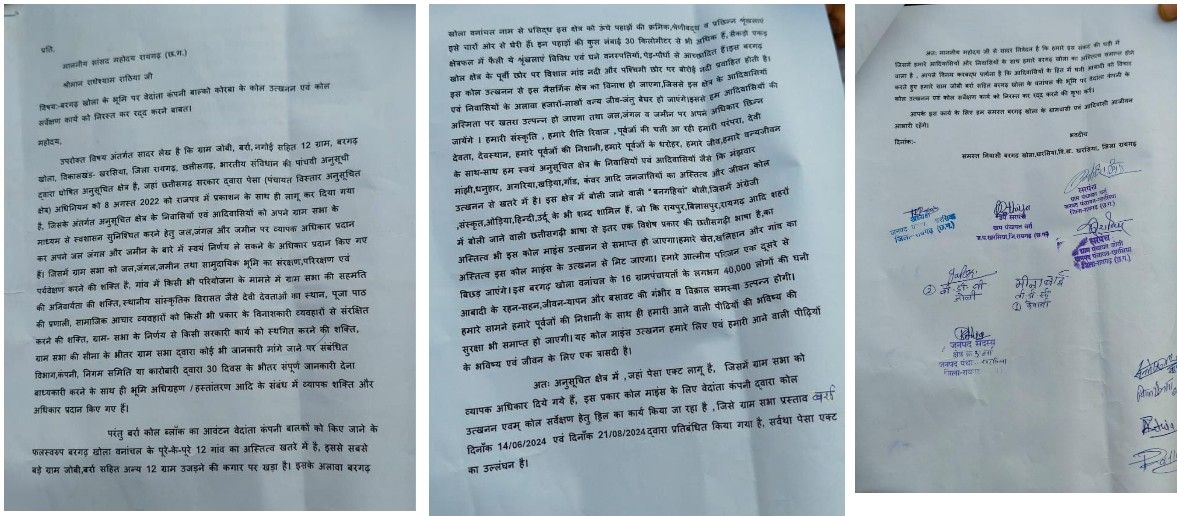 प्रति,
माननीय सांसद महोदय रायगढ़ (छ.ग.)
श्रीमान राधेश्याम राठिया जी
विषय-बरगढ़ खोला के भूमि पर वेदांता कंपनी बाल्को कोरबा के कोल उत्खनन एवं कोल
सर्वेक्षण कार्य को निरस्त कर रद्द करने बाबत।
महोदय,
उपरोक्त विषय अंतर्गत सादर लेख है कि ग्राम जोबी, बर्रा,नगोई सहित 12 ग्राम, बरगढ़
खोला, विकासखंड- खरसिया, जिला रायगढ़, छत्तीसगढ़, भारतीय संविधान की पांचवी अनुसूची
द्वारा घोषित अनुसूचित क्षेत्र है, जहां छत्तीसगढ़ सरकार द्वारा पेसा (पंचायत विस्तार अनुसूचित
क्षेत्र) अधिनियम को 8 अगस्त 2022 को राजपत्र में प्रकाशन के साथ ही लागू कर दिया गया
है, जिसके अंतर्गत अनुसूचित क्षेत्र के निवासियों एवं आदिवासियों को अपने ग्राम सभा के
माध्यम से स्वशासन सुनिश्चित करने हेतु जल,जंगल और जमीन पर व्यापक अधिकार प्रदान
कर अपने जल जंगल और जमीन के बारे में स्वयं निर्णय ले सकने के अधिकार प्रदान किए गए
हैं। जिसमें ग्राम सभा को जल,जंगल,जमीन तथा सामुदायिक भूमि का संरक्षण,परिरक्षण एवं
पर्यवेक्षण करने की शक्ति है, गांव में किसी भी परियोजना के मामले में ग्राम सभा की सहमति
की अनिवार्यता की शक्ति,स्थानीय सांस्कृतिक विरासत जैसे देवी देवताओं का स्थान, पूजा पाठ
की प्रणाली, सामाजिक आचार व्यवहारों को किसी भी प्रकार के विनाशकारी व्यवहारों से संरक्षित
करने की शक्ति, ग्राम- सभा के निर्णय से किसी सरकारी कार्य को स्थगित करने की शक्ति,
ग्राम सभा की सीमा के भीतर ग्राम सभा द्वारा कोई भी जानकारी मांगे जाने पर संबंधित
विभाग,कंपनी, निगम समिति या कारोबारी द्वारा 30 दिवस के भीतर संपूर्ण जानकारी देना
बाध्यकारी करने के साथ ही भूमि अधिग्रहण /हस्तांतरण आदि के संबंध में व्यापक शक्ति और
अधिकार प्रदान किए गए हैं।
परंतु बर्रा कोल ब्लॉक का आवंटन वेदांता कंपनी बालको को किए जाने के
फलस्वरुप बरगढ़ खोला वनांचल के पूरे-के-पूरे 12 गांव का अस्तित्व खतरे में है, इससे सबसे
बड़े ग्राम जोबी,बर्रा सहित अन्य 12 ग्राम उजड़ने की कगार पर खड़ा है। इसके अलावा बरगढ़
खोला वनांचल नाम से प्रसिद्ध इस क्षेत्र को ऊंचे पहाड़ों की क्रमिक,श्रेणीबद्ध व प्रछिन्न श्रृंखलाएं
इसे चारों ओर से घेरी हैं। इन पहाड़ों की कुल लंबाई 30 किलोमीटर से भी अधिक है, सैकड़ो एकड़
क्षेत्रफल में फैली ये श्रृंखलाएं विविध एवं घने वनस्पतियों,पेड़-पौधों से आच्छादित हैं।इस बरगढ़
खोल क्षेत्र के पूर्वी छोर पर विशाल मांड नदी और पश्चिमी छोर पर बोरोई नदी प्रवाहित होती है।
इस कोल उत्खनन से इस नैसर्गिक क्षेत्र का विनाश हो जाएगा,जिससे इस क्षेत्र के आदिवासियों
एवं निवासियों के अलावा हजारों-लाखों वन्य जीव-जंतु बेघर हो जाएंगे।इससे हम आदिवासियों की
अस्मिता पर खतरा उत्पन्न हो जाएगा तथा जल,जंगल व जमीन पर अपने अधिकार छिन्न
जायेंगे । हमारी संस्कृति , हमारे रीति रिवाज , पूर्वजों की चली आ रही हमारी परंपरा, देवी
देवता, देवस्थान, हमारे पूर्वजों की निशानी,हमारे पूर्वजों के धरोहर, हमारे जीव,हमारे वन्यजीवन
के साथ-साथ हम स्वयं अनुसूचित क्षेत्र के निवासियों एवं आदिवासियों जैसे कि मंझवार
मांझी,धनुहार, अगरिया,खड़िया,गोंड, कंवर आदि जनजातियों का अस्तित्व और जीवन कोल
उत्खनन से खतरे में है। इस क्षेत्र में बोली जाने वाली "बनगहियां" बोली,जिसमें अंग्रेजी
,संस्कृत,ओडिया,हिन्दी,उर्दू के भी शब्द शामिल हैं, जो कि रायपुर,बिलासपुर,रायगढ़ आदि शहरों
में बोली जाने वाली छत्तीसगढ़ी भाषा से इतर एक विशेष प्रकार की छत्तीसगढ़ी भाषा है,का
अस्तित्व भी इस कोल माइंस के उत्खनन से समाप्त हो जाएगा।हमारे खेत,खलिहान और गांव का
अस्तित्व इस कोल माइंस के उत्खनन से मिट जाएगा। हमारे आत्मीय परिजन एक दूसरे से
बिछड़ जाएंगे।इस बरगढ़ खोला वनांचल के 16 ग्रामपंचायतों के लगभग 40,000 लोगों की घनी
आबादी के रहन-सहन,जीवन-यापन और बसावट की गंभीर व विक्राल समस्या उत्पन्न होगी।
हमारे सामने हमारे पूर्वजों की निशानी के साथ ही हमारी आने वाली पीढ़ियों की भविष्य की
सुरक्षा भी समाप्त हो जाएगी।यह कोल माइंस उत्खनन हमारे लिए एवं हमारी आने वाली पीढ़ियों
के भविष्य एवं जीवन के लिए एक त्रासदी है।
अतः अनुसूचित क्षेत्र में ,जहां पेसा एक्ट लागू है, जिसमें ग्राम सभा को
व्यापक अधिकार दिये गये हैं, इस प्रकार कोल माइंस के लिए वेदांता कंपनी द्वारा कोल
उत्खनन एवम् कोल सर्वेक्षण हेतु ड्रिल का कार्य किया जा रहा है ,जिसे ग्राम सभा प्रस्ताव बर्रा
दिनाँक 14/06/2024 एवं दिनाँक 21/08/2024द्वारा प्रतिबंधित किया गया है, सर्वथा पेसा एक्ट
का उल्लंघन है।
अतः माननीय महोदय जी से सादर निवेदन है कि हमारे इस संकट की घड़ी में
जिसमें हमारे आदिवासियों और निवासियों के साथ हमारे बरगढ़ खोला का अस्तित्व समाप्त होने
वाला है , आपसे विनम्र करबद्ध प्रार्थना है कि आदिवासियों के हित में घनी आबादी को विचार
करते हुए हमारे ग्राम जोबी बर्रा सहित बरगढ़ खोला वनांचल की भूमि पर वेदांता कंपनी के
कोल उत्खनन एवं कोल सर्वेक्षण कार्य को निरस्त कर रद्द करने की कृपा करें।
आपके इस कार्य के लिए हम समस्त बरगढ़ खोला के ग्रामवासी एवं आदिवासी आजीवन
आभारी रहेंगे।
भवदीय
दिनांक:-
समस्त निवासी बरगढ़ खोला,खरसिया,वि.ख. खरसिया, जिला रायगढ़
सरपंच
ग्राम पंचायत बर्रा
जनपद पंचायत खरसिया
जिला-रायगढ़ (छ.ग.)
सरपंच
ग्राम पंचायत जोबी
जनपद पंचायत-खरसिया
जिला-रायगढ़ (छ.ग.)
जनपद सदस्य
जनपद पंचा
जिला-रायगढ़